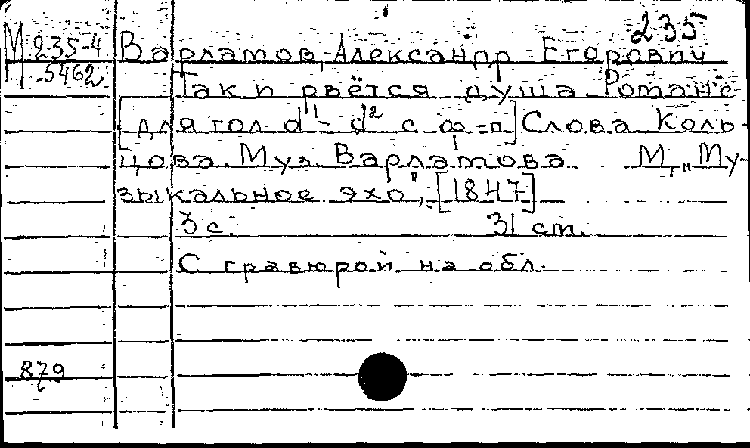 235
М 235-4 Варламов, Александр Егорович
П-5462 Так и рвётся душа. Романс
[для гол. d¹ - d² с ф-п.] Слова Коль-
цова. Муз. Варламова. М., "Му-
зыкальное эхо", [1847]
3 с. 31 см.
С гравюрой на обл.
879